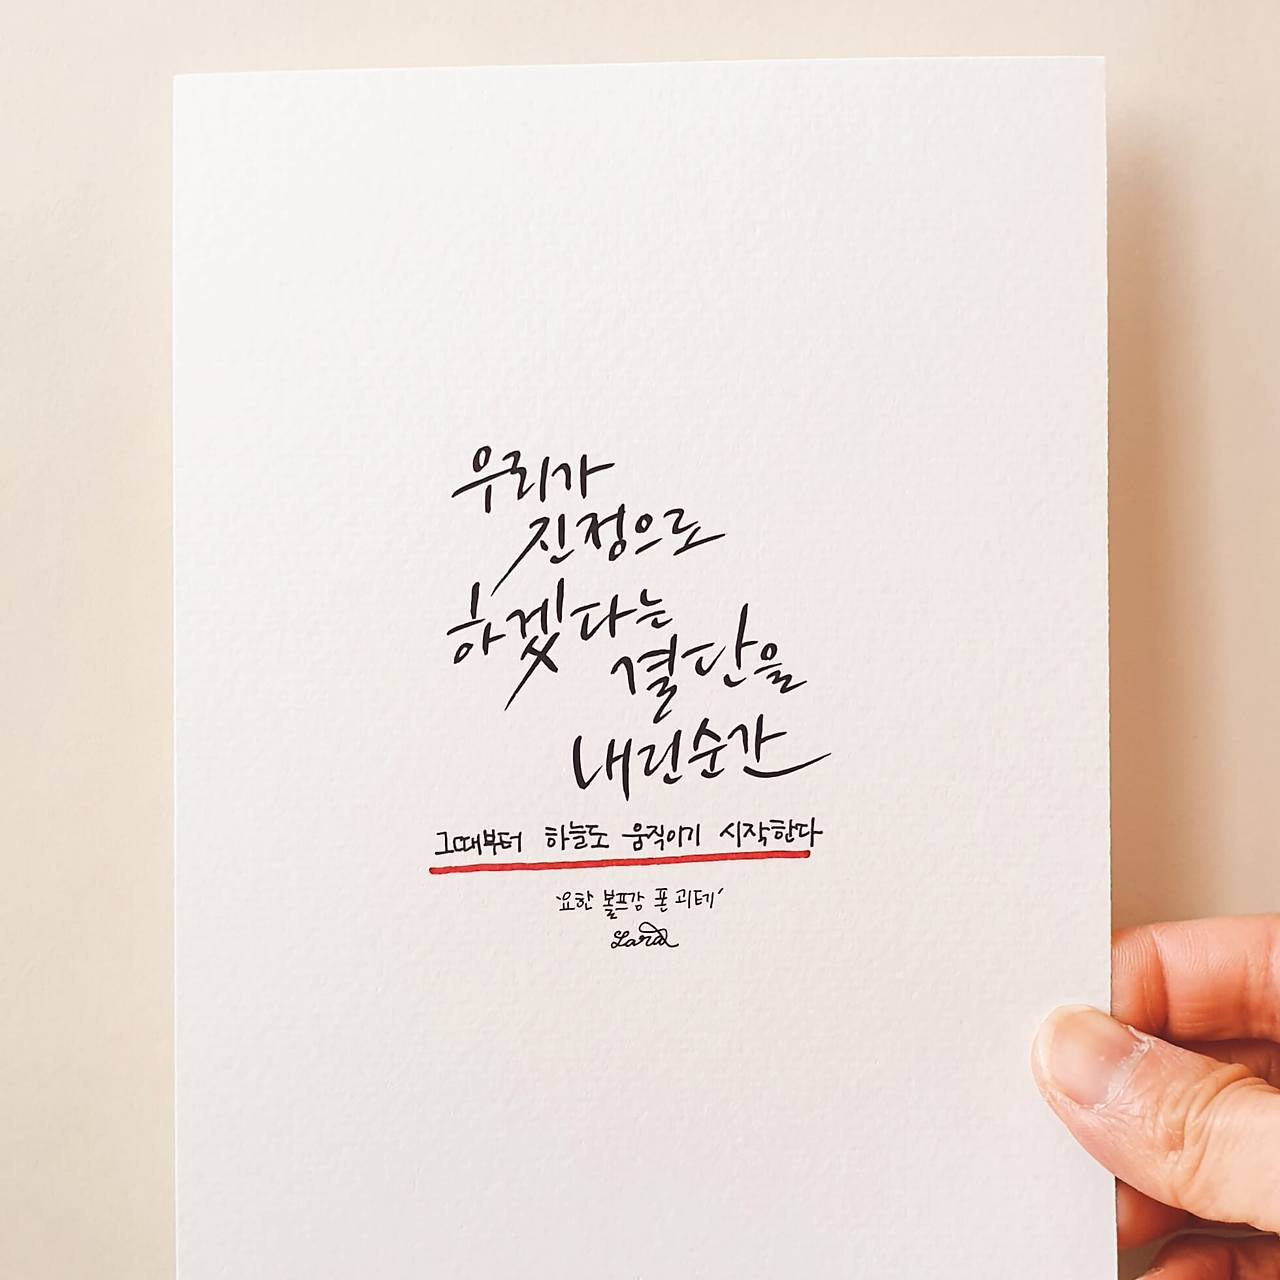 우리가
진정으로
하겠다는
결단을
내린순간
그때부터 하늘도 움직이기 시작한다
'요한 볼프강 폰 괴테'
Lara